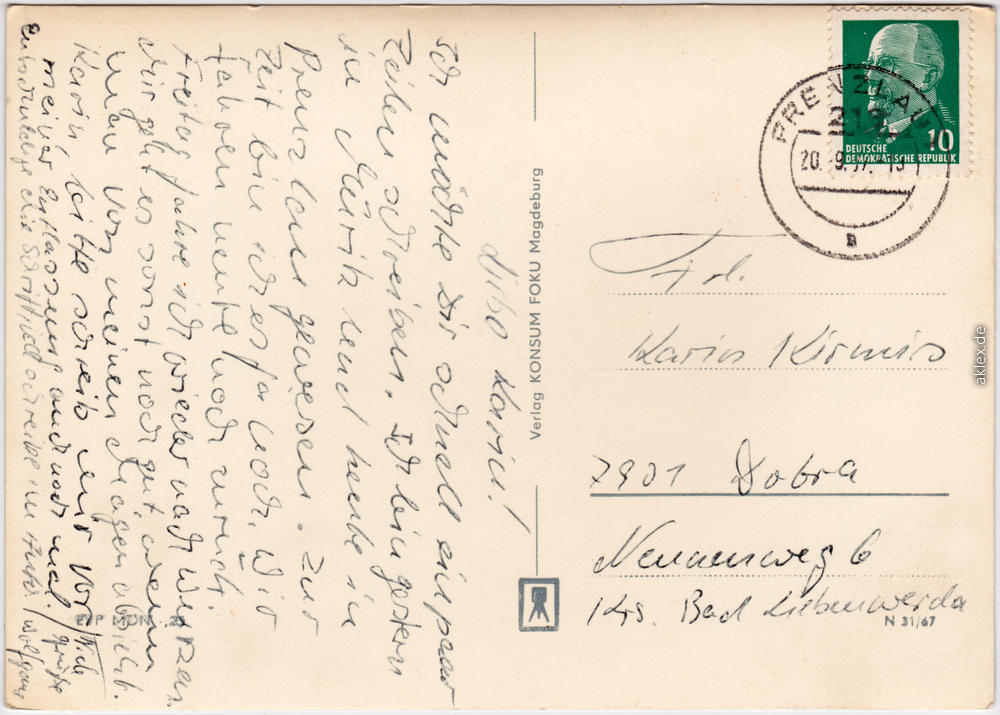 Liebe Karin!
Ich möchte Dir schnell ein paar
Zeilen schreiben. Ich bin gestern
in Müritz und heute in
Prenzlau gewesen. Zur
Zeit bin ich es ja noch. Wir
fahren heute noch zurück.
Freitag fahre ich wieder nach Wurzen.
Mir geht es sonst noch gut, wenn
man von meinen Magen absieht.
Karin bitte schreib mir vor
meiner Entlassung auch noch mal.
Entschuldige die Schrift, ich schreibe im Auto. / Wolfgang
Grüße
Verlag KONSUM FOKU Magdeburg
PRENZLAU
213
20. 9. 67
DEUTSCHE
DEMOKRATISCHE REPUBLIK
10
Frl.
Karin Kirmis
7901 Dobra
Neuerweg 6
Krs. Bad Liebenwerda
N 31/67
aklex.de